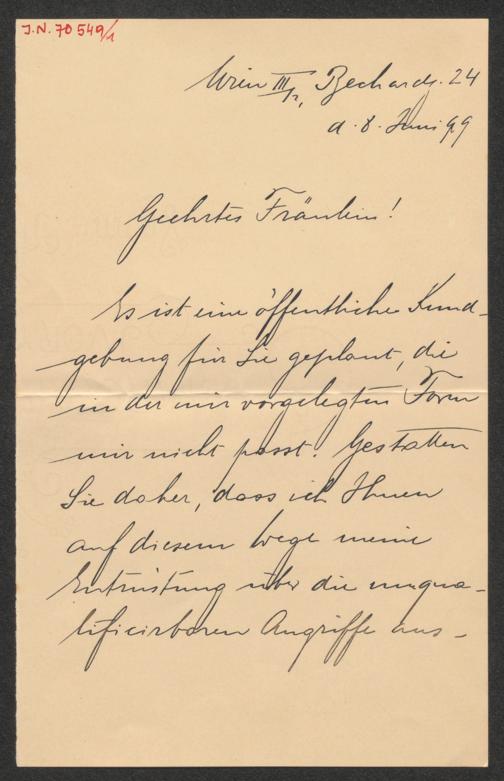 J.N. 70549/1
Wien III/2, Bechardg. 24
d. 8. Juni 99
Geehrtes Fräulein!
Es ist eine öffentliche Kund-
gebung für Sie geplant, die
in der mir vorgelegten Form
mir nicht passt. Gestatten
Sie daher, dass ich Ihnen
auf diesem Wege meine
Entrüstung über die unqua-
lificirbaren Angriffe aus-